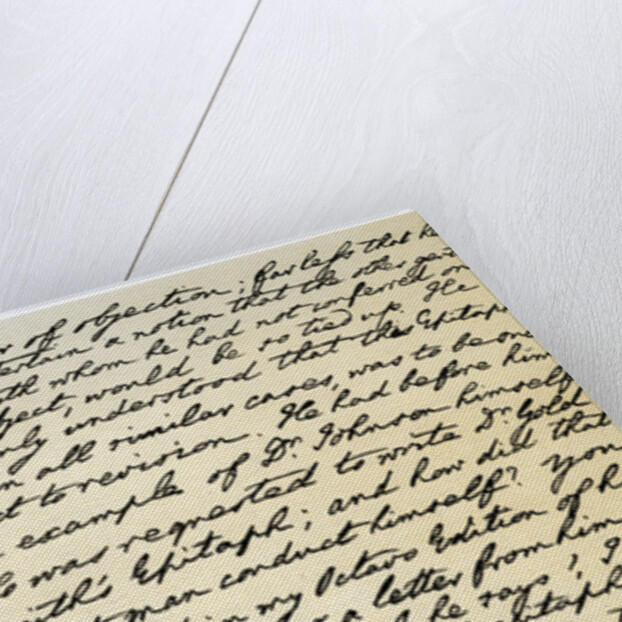 of objection; far less that he
ertain a notion that the other gen
th whom he had not conferred on
bject, would be so tied up. He
nly understood that this Epitaph
n all similar cases, was to be one
ct to revision. He had before him
example of Dr. Johnson himself
o was requested to write Dr. Gold
ith's Epitaph; and how did that
t man conduct himself? You
in my Octavo Edition of h
a letter from him
he says, I
pitaph